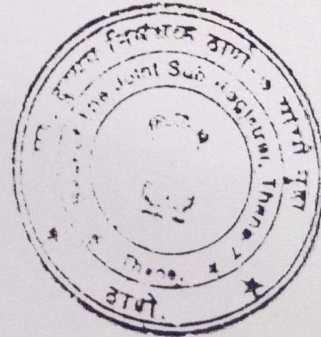 सह. दुय्यम निबंधक ठाणे-७ यांची मुद्रा
of the Joint Sub Registrar, Thane-7
Thane.
ठाणे.